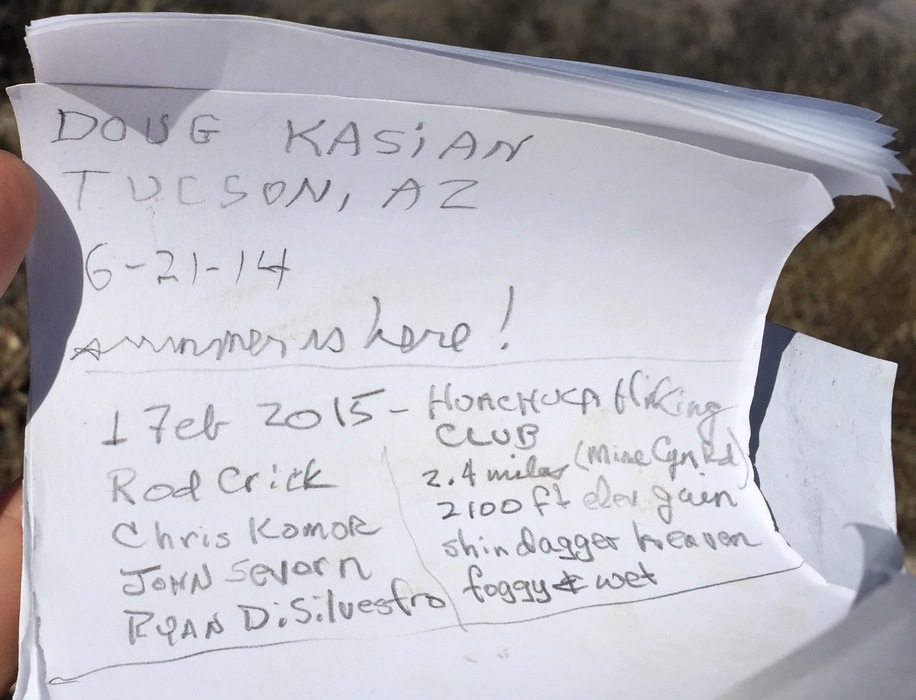 DOUG KASiAN
TUCSON, AZ
6-21-14
summer is here!
1 Feb 2015 - HUACHUCA Hiking
CLUB
Rod Crick
Chris Komor
JOHN Severn
RYAN DiSilvestro
2.4 miles (Mine Cyn Rd)
2100 ft elev gain
shindagger heaven
foggy & wet